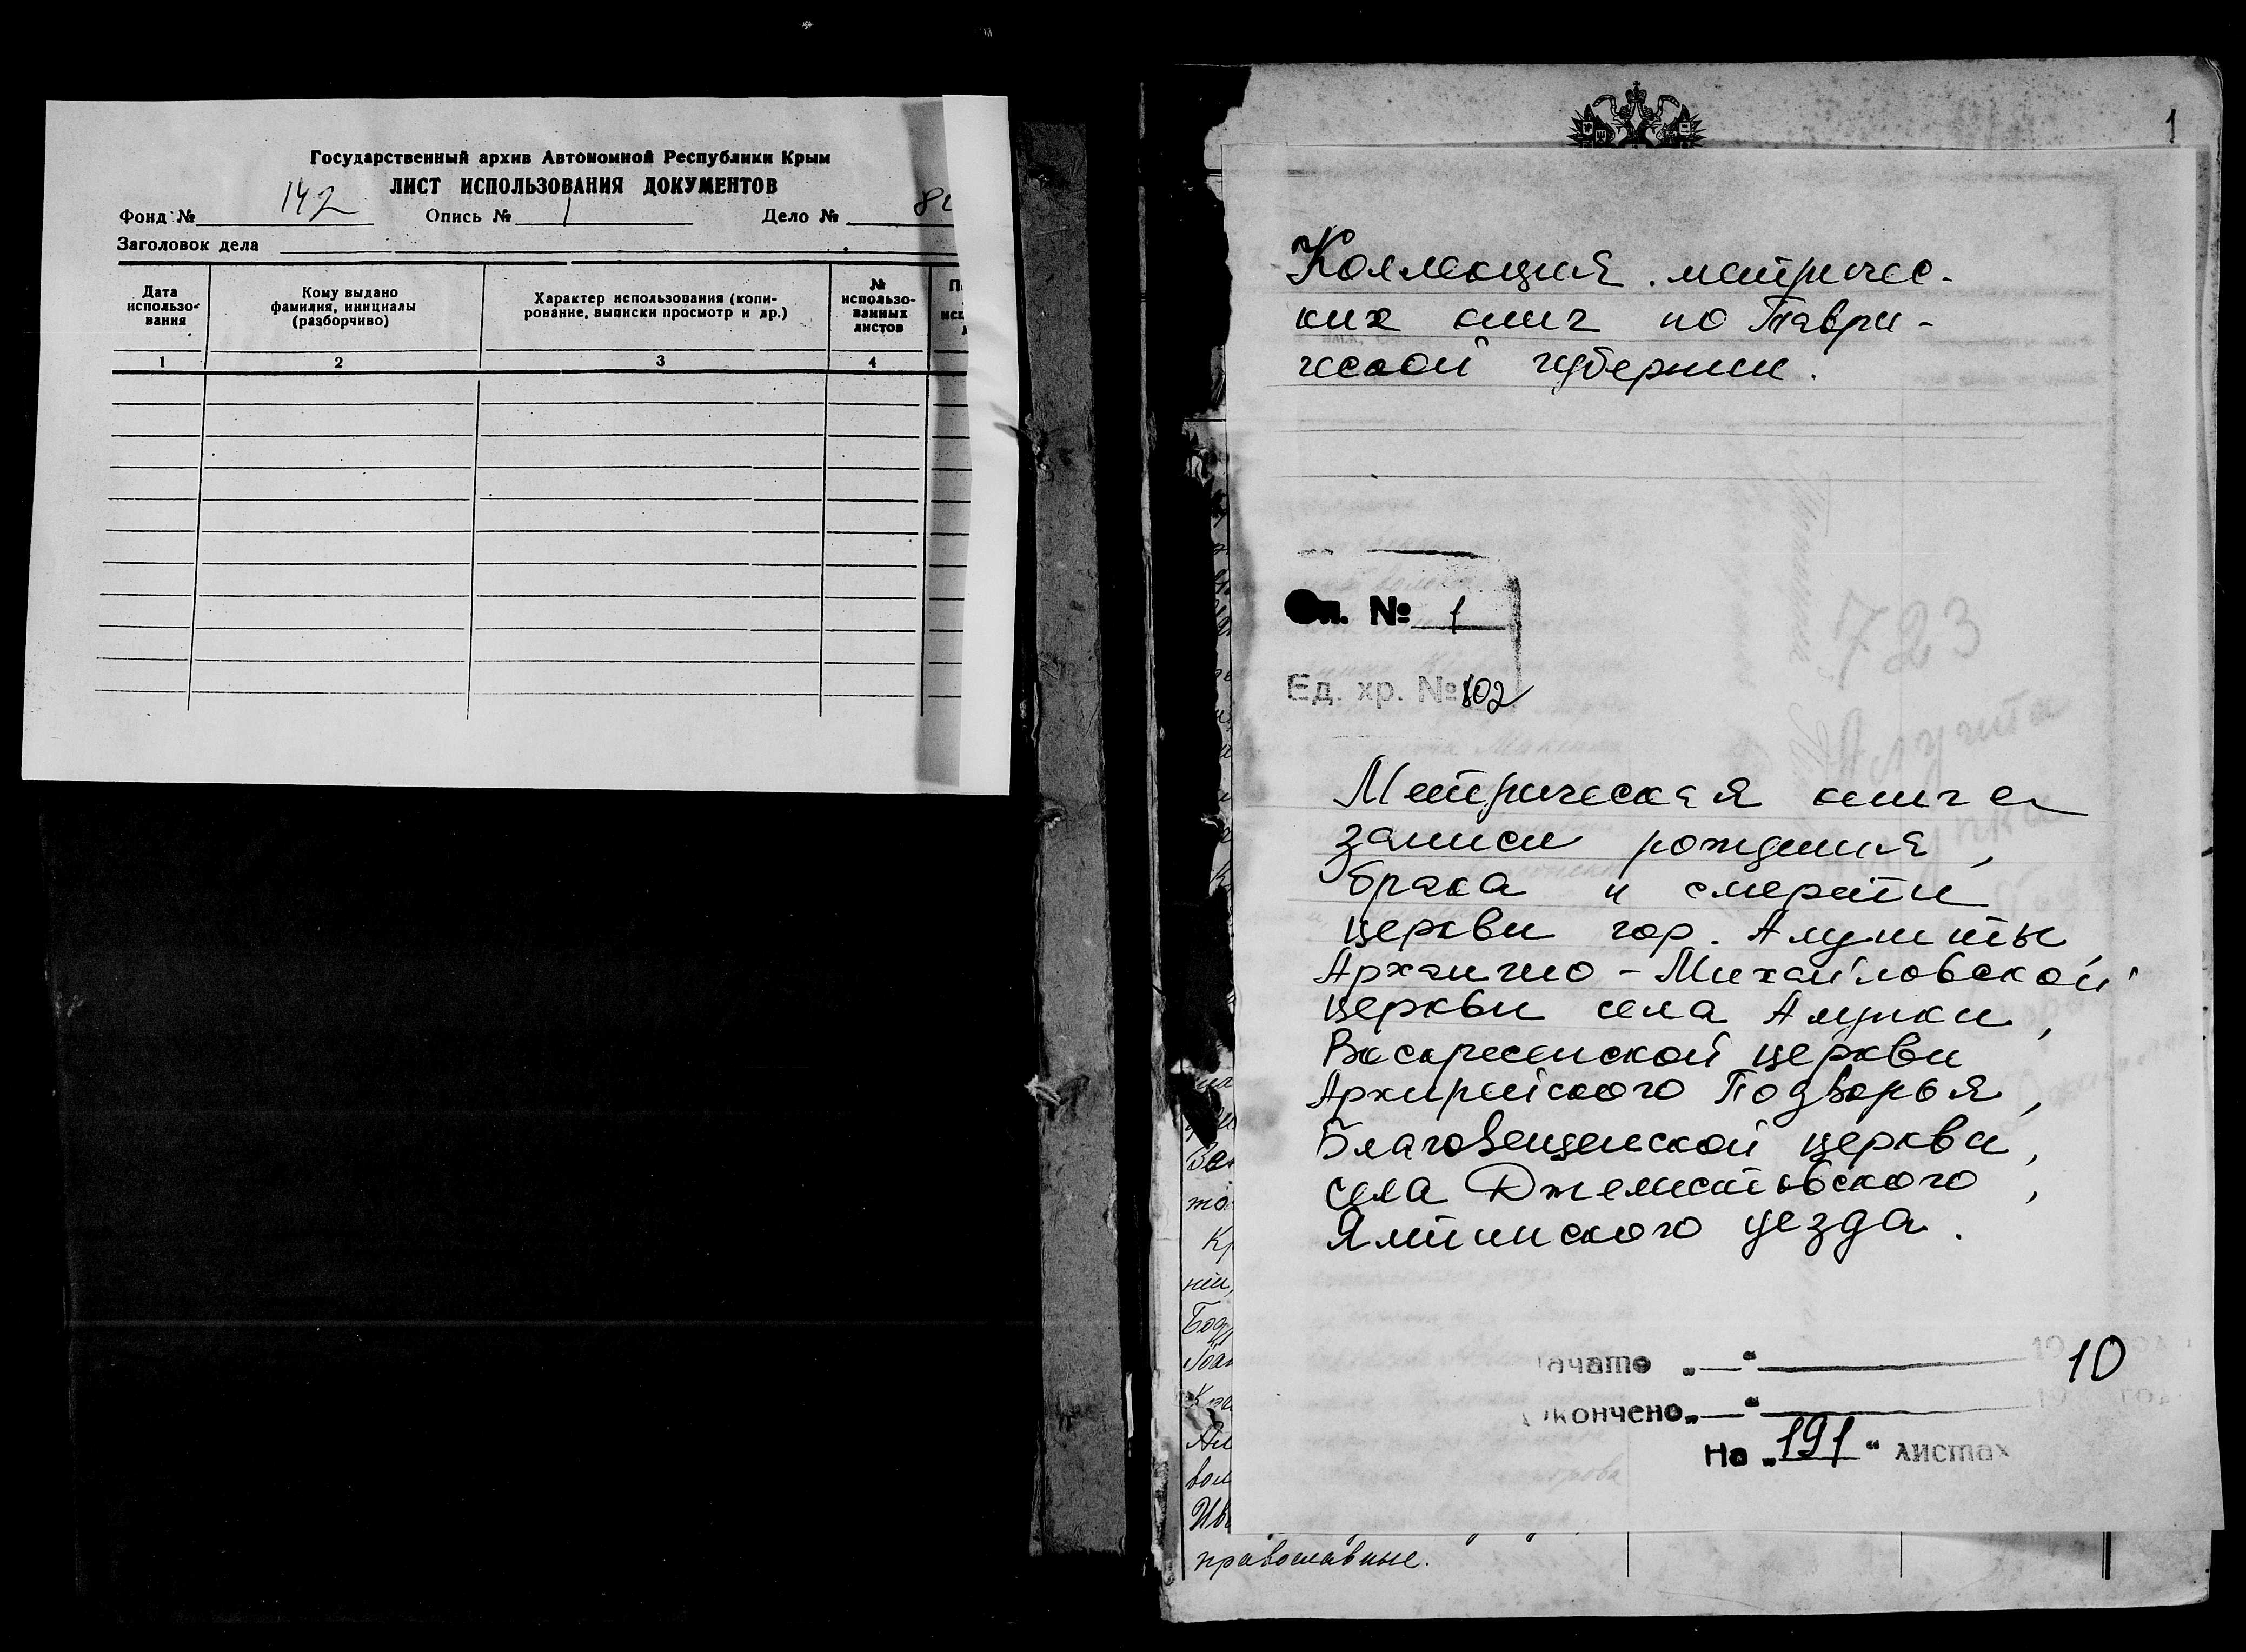 Государственный архив Автономной Республики Крым
ЛИСТ ИСПОЛЬЗОВАНИЯ ДОКУМЕНТОВ
Фонд № 142 Опись № 1 Дело № 8
Заголовок дела
Дата использо-вания
Кому выдано фамилия, инициалы (разборчиво)
Характер использования (копи-рование, выписки просмотр и др.)
№ использо-ванных листов
1 2 3 4
1
Коллекция метричес-
ких книг по Таври-
ческой губернии.
Оп. № 1
Ед. хр. № 802
723
Алушта
Метрическая книга
записи рождения,
брака и смерти
церкви гор. Алушты
Архангело-Михайловской
церкви села Алупки,
Воскресенской церкви
Архирейского Подворья,
Благовещенской церкви,
села Джемистовского,
Ялтинского уезда.
ачато „—“ 10
кончено „—“
На „191“ листах
православные.